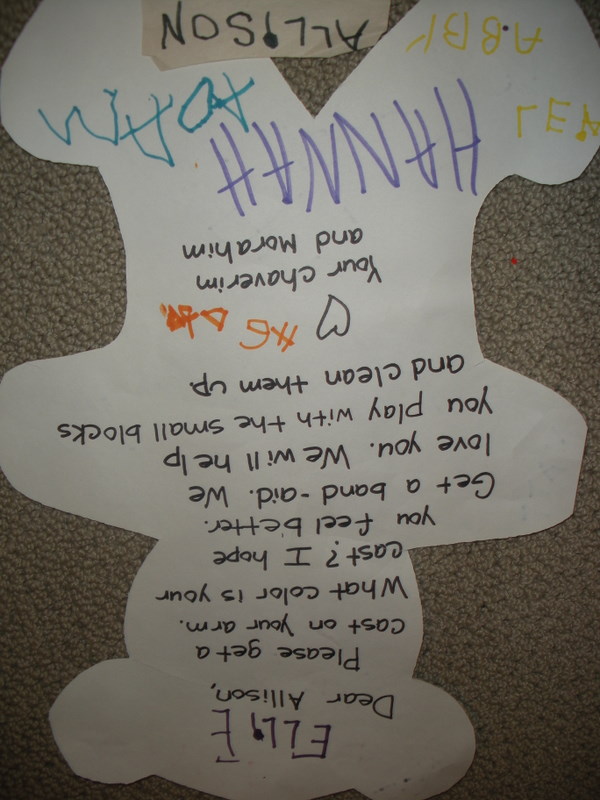 ELLiE
Dear Allison,
Please get a
cast on your arm.
What color is your
cast? I hope
you feel better.
Get a band-aid. We
love you. We will help
you play with the small blocks
and clean them up.
Your chaverim
and Morahim
HANNAH
ADAM
ABBY
ALLiSON